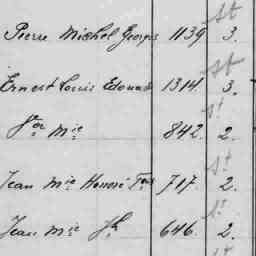 St
Pierre Michel Georges 1139 3.
St
Ernest Louis Edouard 1314. 3.
St
Jor Mie 842. 2.
St
Jean Mie Honoré Fois 717. 2.
St
Jean Mie Jh 646. 2.
St